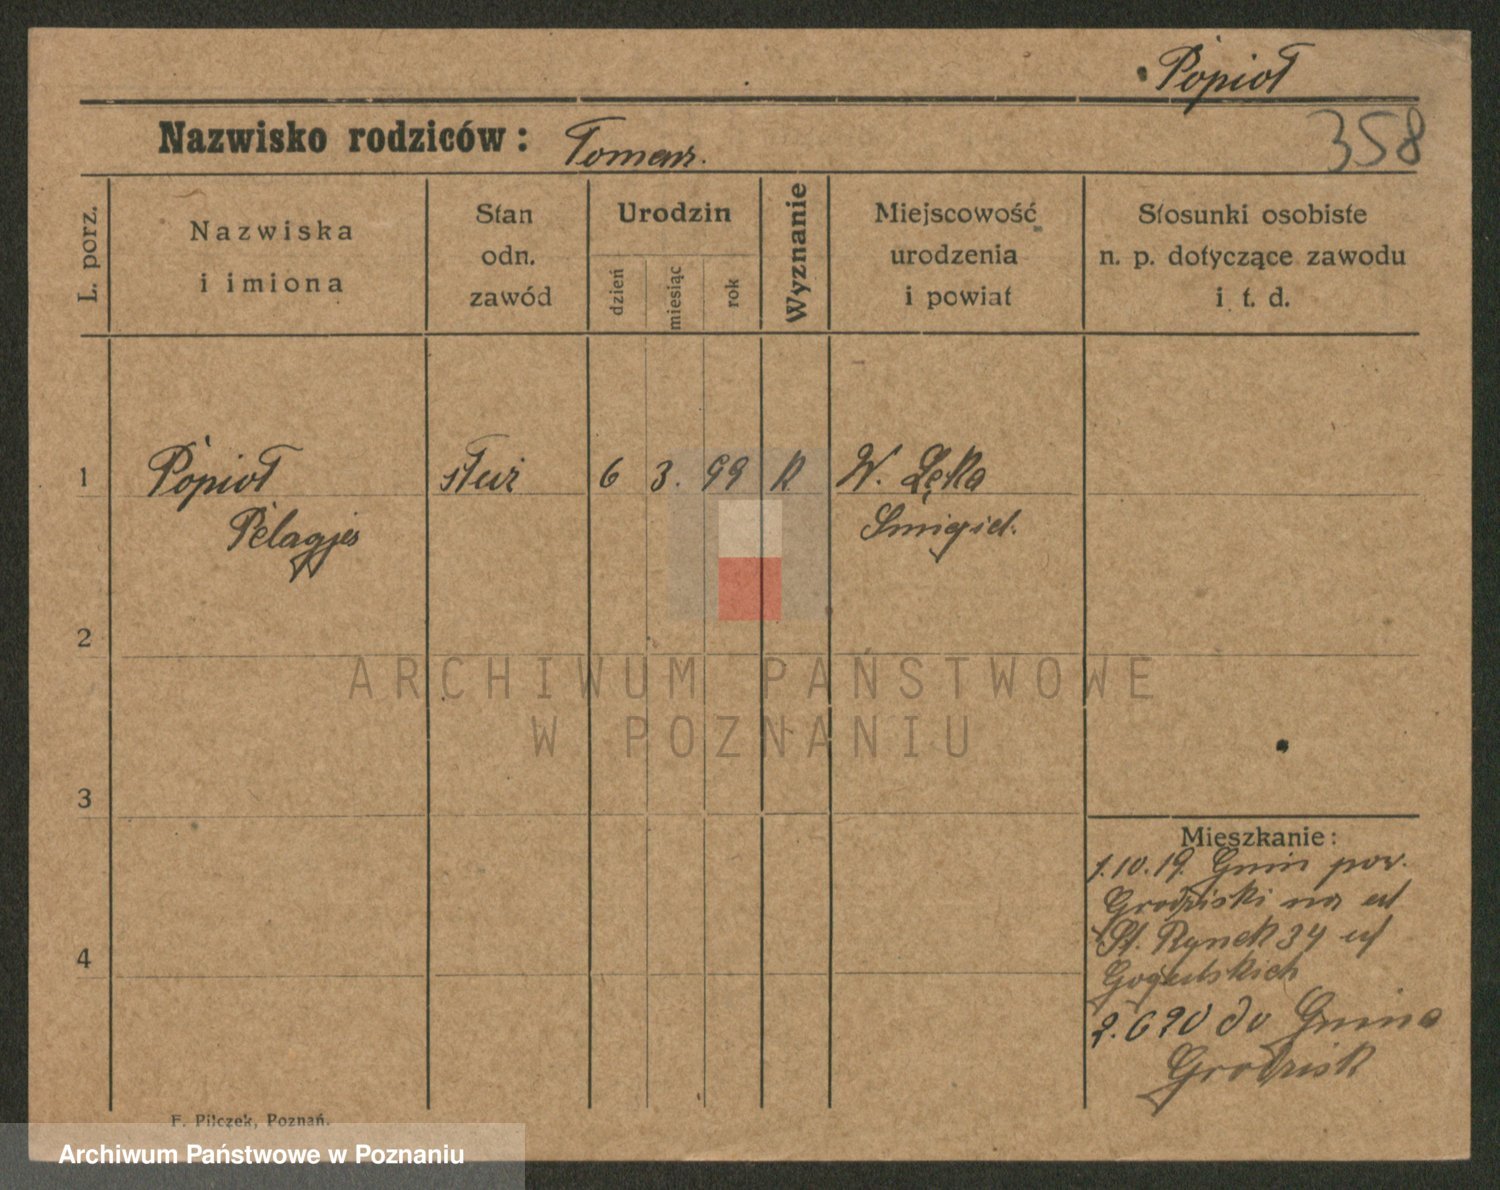 Popioł
358
Nazwisko rodziców: Tomasz.
L. porz.
Nazwiska
i imiona
Stan
odn.
zawód
Urodzin
dzień
miesiąc
rok
Wyznanie
Miejscowość
urodzenia
i powiat
Stosunki osobiste
n. p. dotyczące zawodu
i t. d.
1 Popioł służ 6 3. 99 K W. Łęka
Pelagja Śmigiel.
2
ARCHIWUM PAŃSTWOWE
W POZNANIU
3
Mieszkanie:
1.10.19. Gnin pow.
Grodziski na ul
St. Rynek 34 u
4
2.6 20 do Gnina
Grodzisk
F. Pilczek, Poznań.
Archiwum Państwowe w Poznaniu